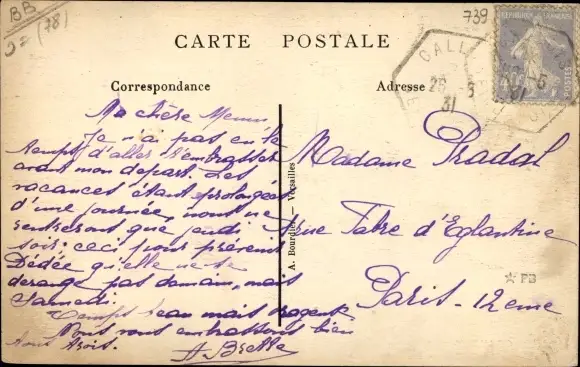 BB
(78)
739
CARTE POSTALE
Correspondance
Adresse
REPUBLIQUE FRANÇAISE
POSTES
CALL
26 -5
31
Ma chère
Je n'ai pas eu le
temps d'aller l'embrasser
avant mon départ. Les
vacances étant prolongées
d'une journée, nous ne
rentrerons que jeudi
soir; ceci pour prévenir
Dédée qu'elle ne se
dérange pas demain, mais
Samedi.
Temps beau mais
Nous vous embrassons bien
tous trois.
A. Bourdier — Versailles
Madame Pradal
rue Fabre d'Eglantine
Paris - 12eme
FB